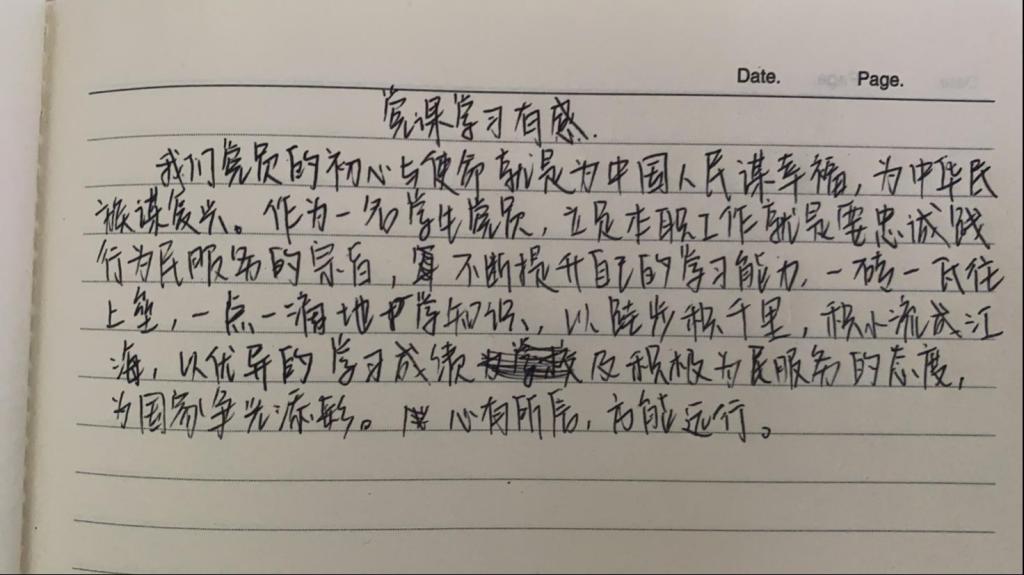 Date. Page.
党课学习有感.
我们党员的初心与使命就是为中国人民谋幸福，为中华民
族谋复兴。作为一名学生党员，立足本职工作就是要忠诚践
行为民服务的宗旨，不断提升自己的学习能力，一砖一瓦往
上垒，一点一滴地学知识，以跬步积千里，积小流成江
海，以优异的学习成绩及积极为民服务的态度，
为国家争光添彩。心有所信，方能远行。